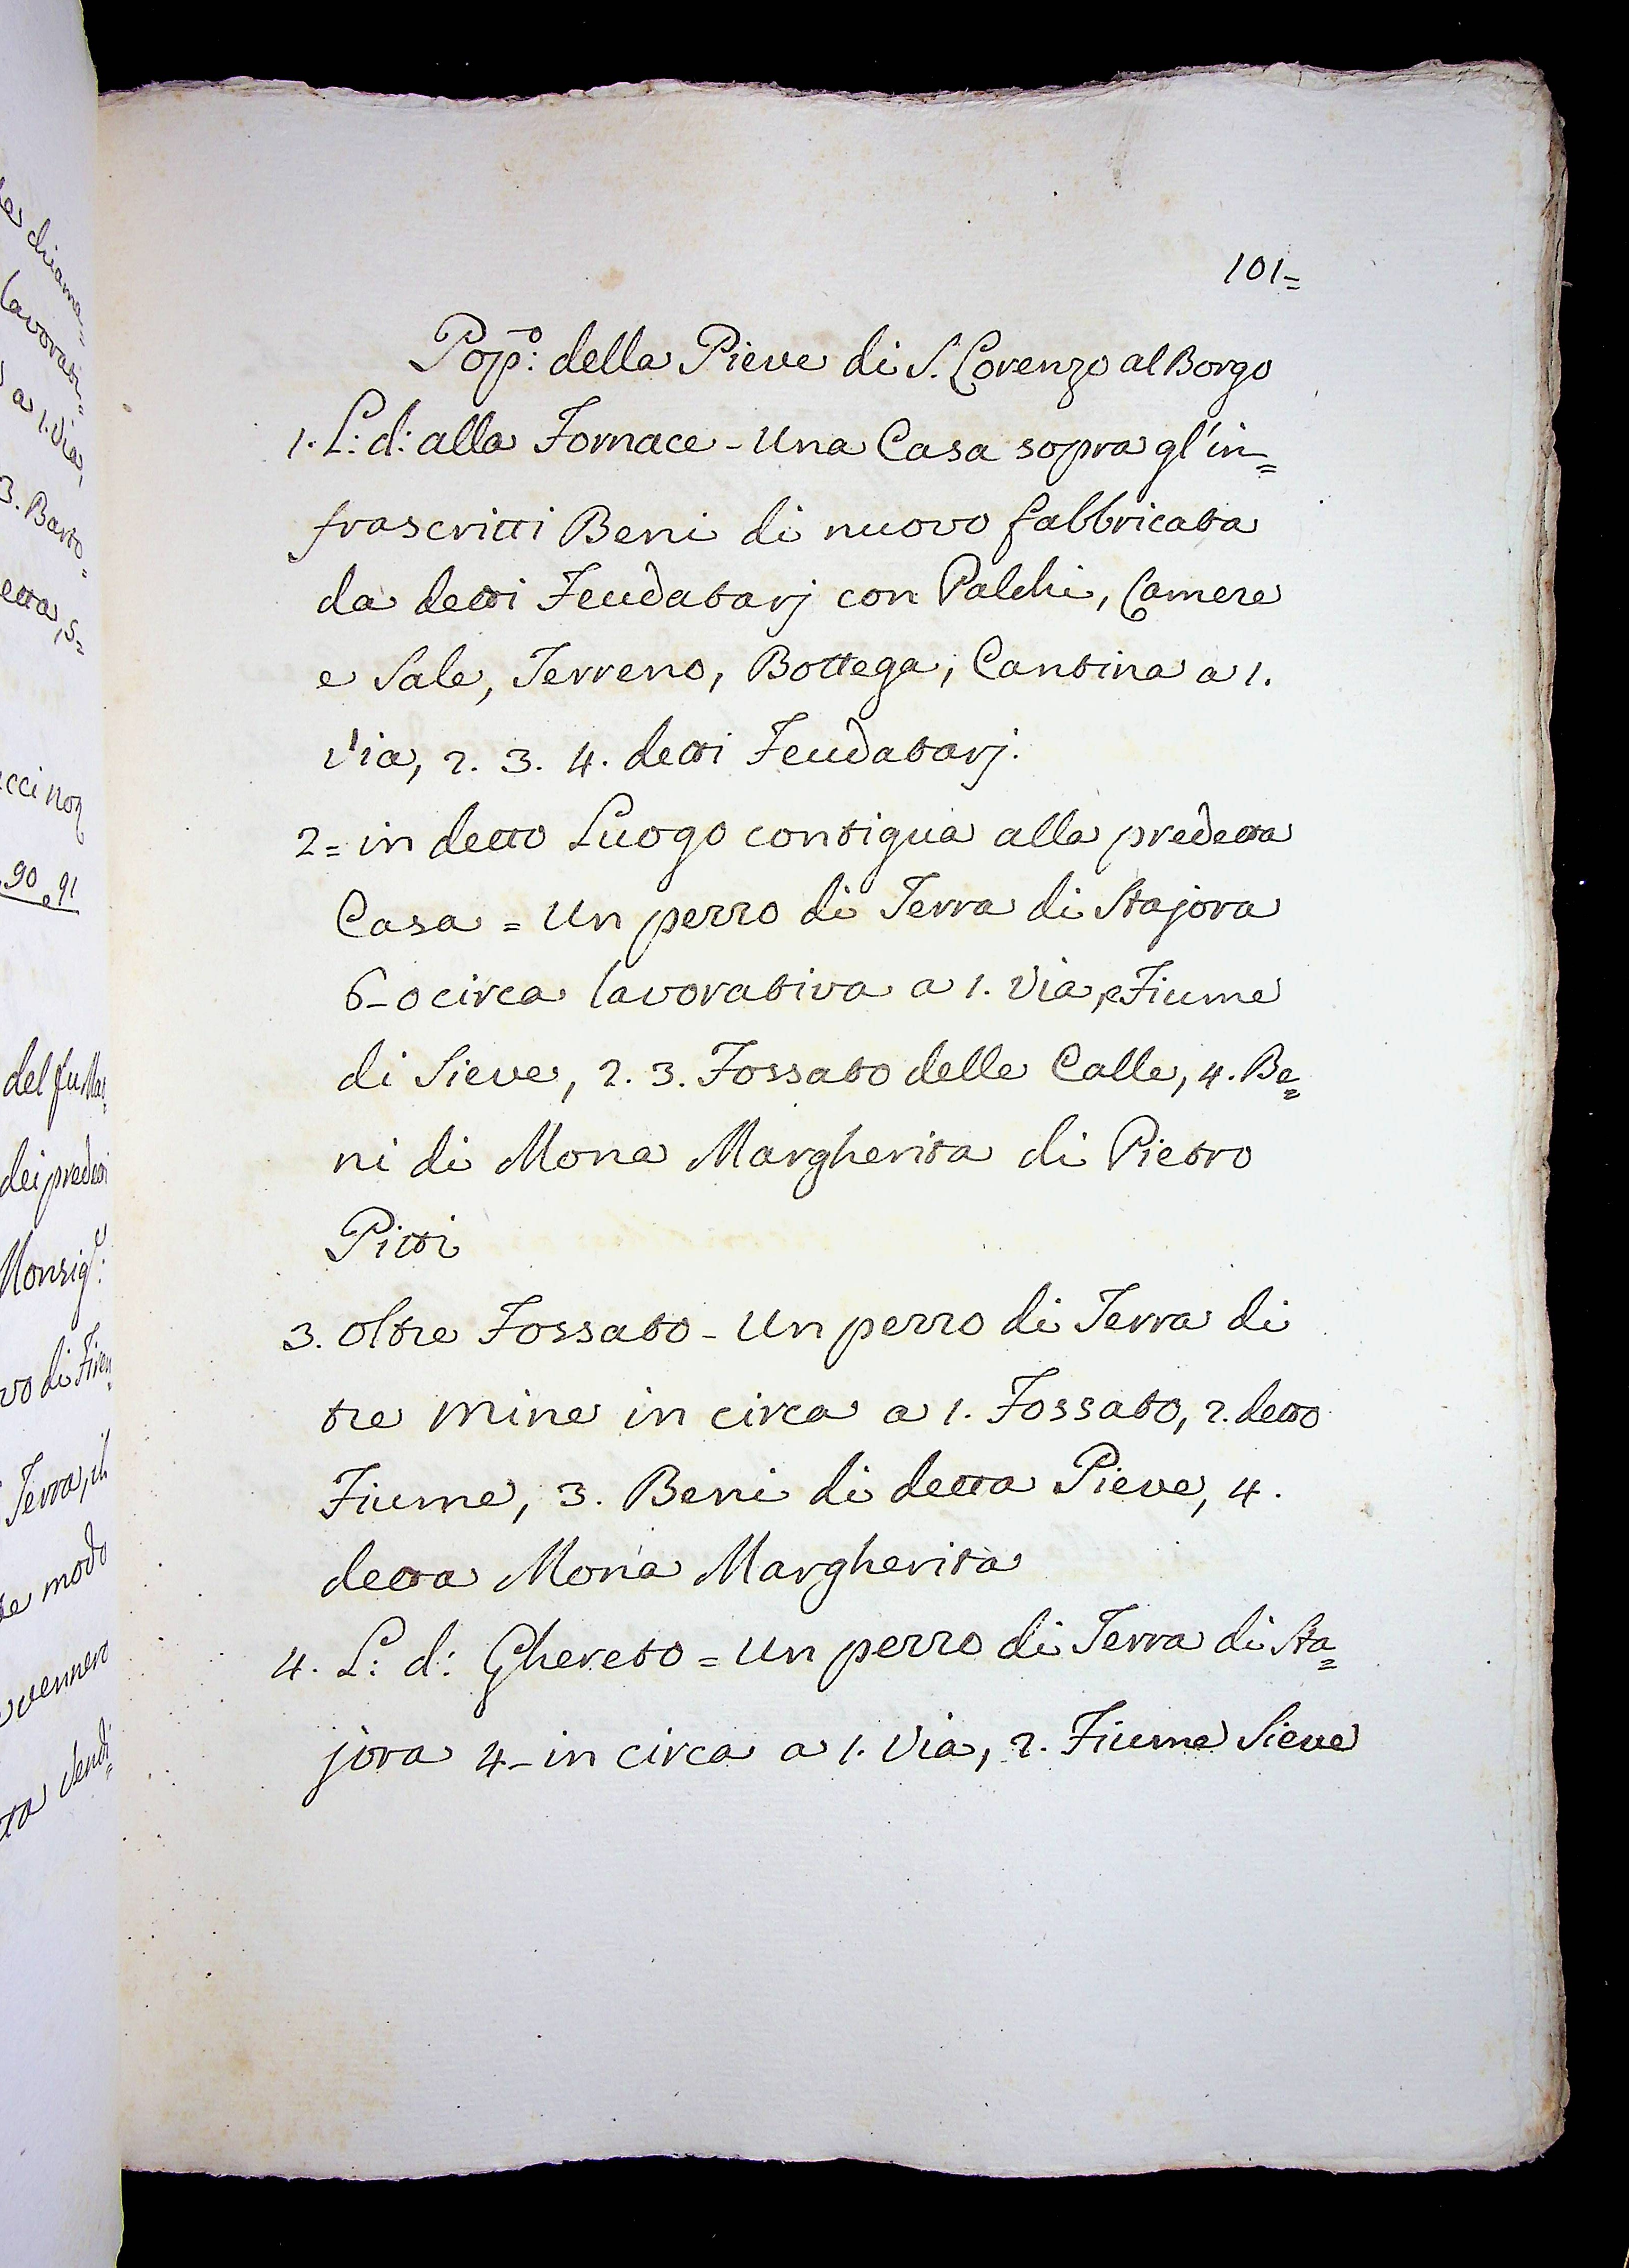 101=
Pop.º: della Pieve di S. Lorenzo al Borgo
1. L: d: alla Fornace - Una Casa sopra gl'in=
frascritti Beni di nuovo fabbricata
da detti Feudatarj con Palchi, Camere
e Sale, Terreno, Bottega, Cantina a 1.
Via, 2. 3. 4. detti Feudatarj.
2= in detto Luogo contigua alla predetta
Casa = Un pezzo di Terra di Stajora
6-0 circa lavorativa a 1. Via, e Fiume
di Sieve, 2. 3. Fossato delle Calle, 4. Be=
ni di Mona Margherita di Pietro
Pitti
3. Oltre Fossato - Un pezzo di Terra di
tre mine in circa a 1. Fossato, 2. detto
Fiume, 3. Beni di detta Pieve, 4.
detta Mona Margherita
4. L: d: Ghereto = Un pezzo di Terra di Sta=
jora 4- in circa a 1. Via, 2. Fiume Sieve